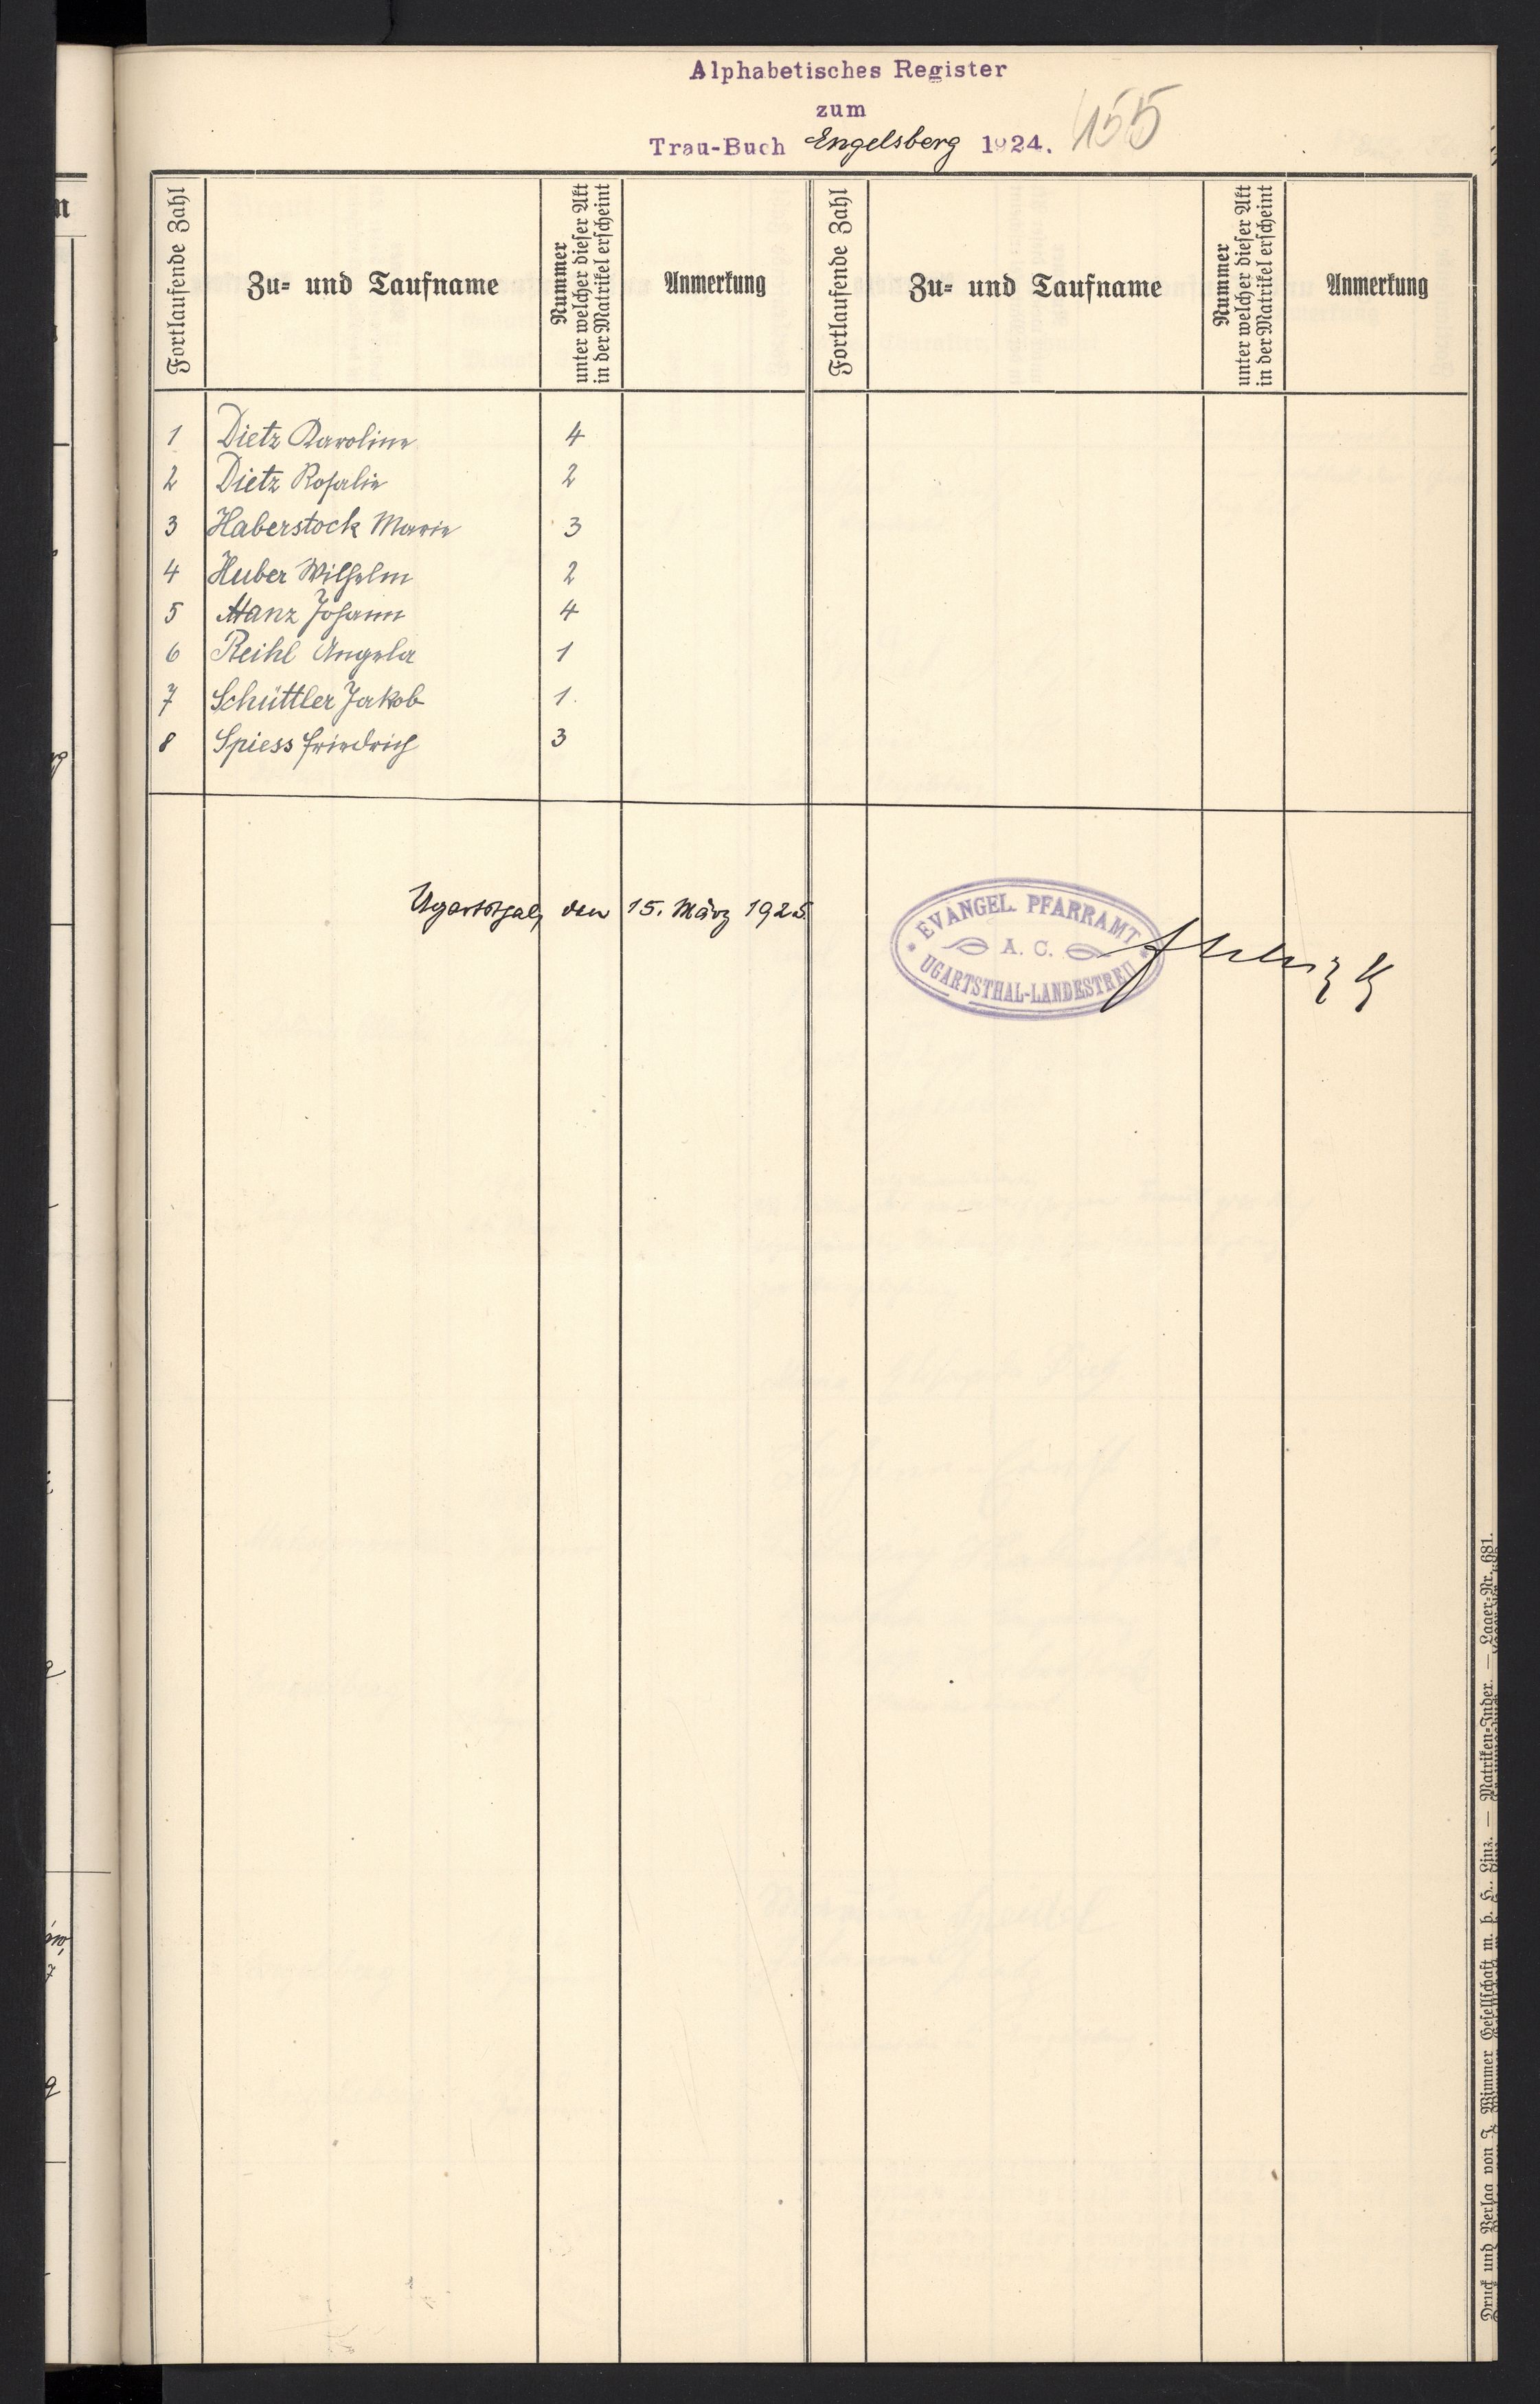 Alphabetisches Register
zum
Trau-Buch Engelsberg 1924.
155
Fortlaufende Zahl
Zu- und Taufname
Nummer
unter welcher dieser Akt
in der Matrikel erscheint
Anmerkung
Fortlaufende Zahl
Zu- und Taufname
Nummer
unter welcher dieser Akt
in der Matrikel erscheint
Anmerkung
1 Dietz Karoline 4
2 Dietz Rosalie 2
3 Haberstock Marie 3
4 Huber Wilhelm 2
5 Manz Johann 4
6 Reihl Angela 1
7 Schüttler Jakob 1.
8 Spiess Friedrich 3
Ugartsthal, den 15. März 1925
EVANGEL. PFARRAMT
A. C.
UGARTSTHAL-LANDESTREU
Druck und Verlag von J. Wimmer Gesellschaft m. b. H., Linz. — Matriken-Index. — Lager-Nr. 681.